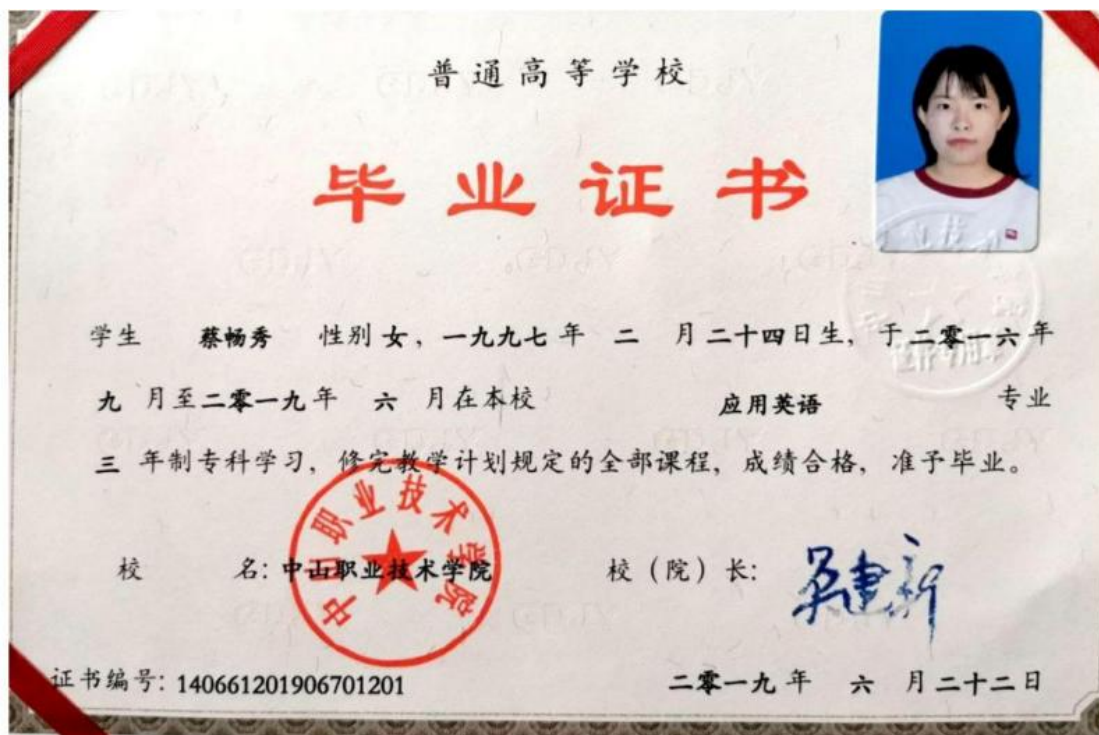 普通高等学校
毕业证书
学生 蔡畅秀 性别 女，一九九七年 二 月二十四日生，于二零一六年
九 月至二零一九年 六 月在本校 应用英语 专业
三 年制专科学习，修完教学计划规定的全部课程，成绩合格，准予毕业。
中山职业技术学院
校 名：中山职业技术学院 校（院）长：吴建新
证书编号：140661201906701201 二零一九年 六 月二十二日